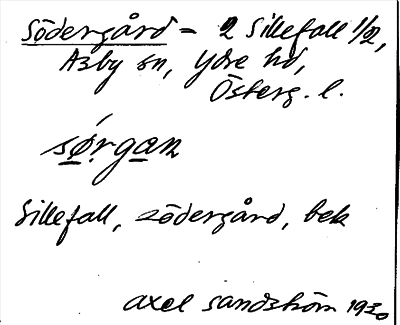 Södergård = 2 Sillefall 1/2,
Asby sn, Ydre hd,
Österg. l.
sø̀rgan
Sillefall, södergård, bek
Axel Sandström 1930